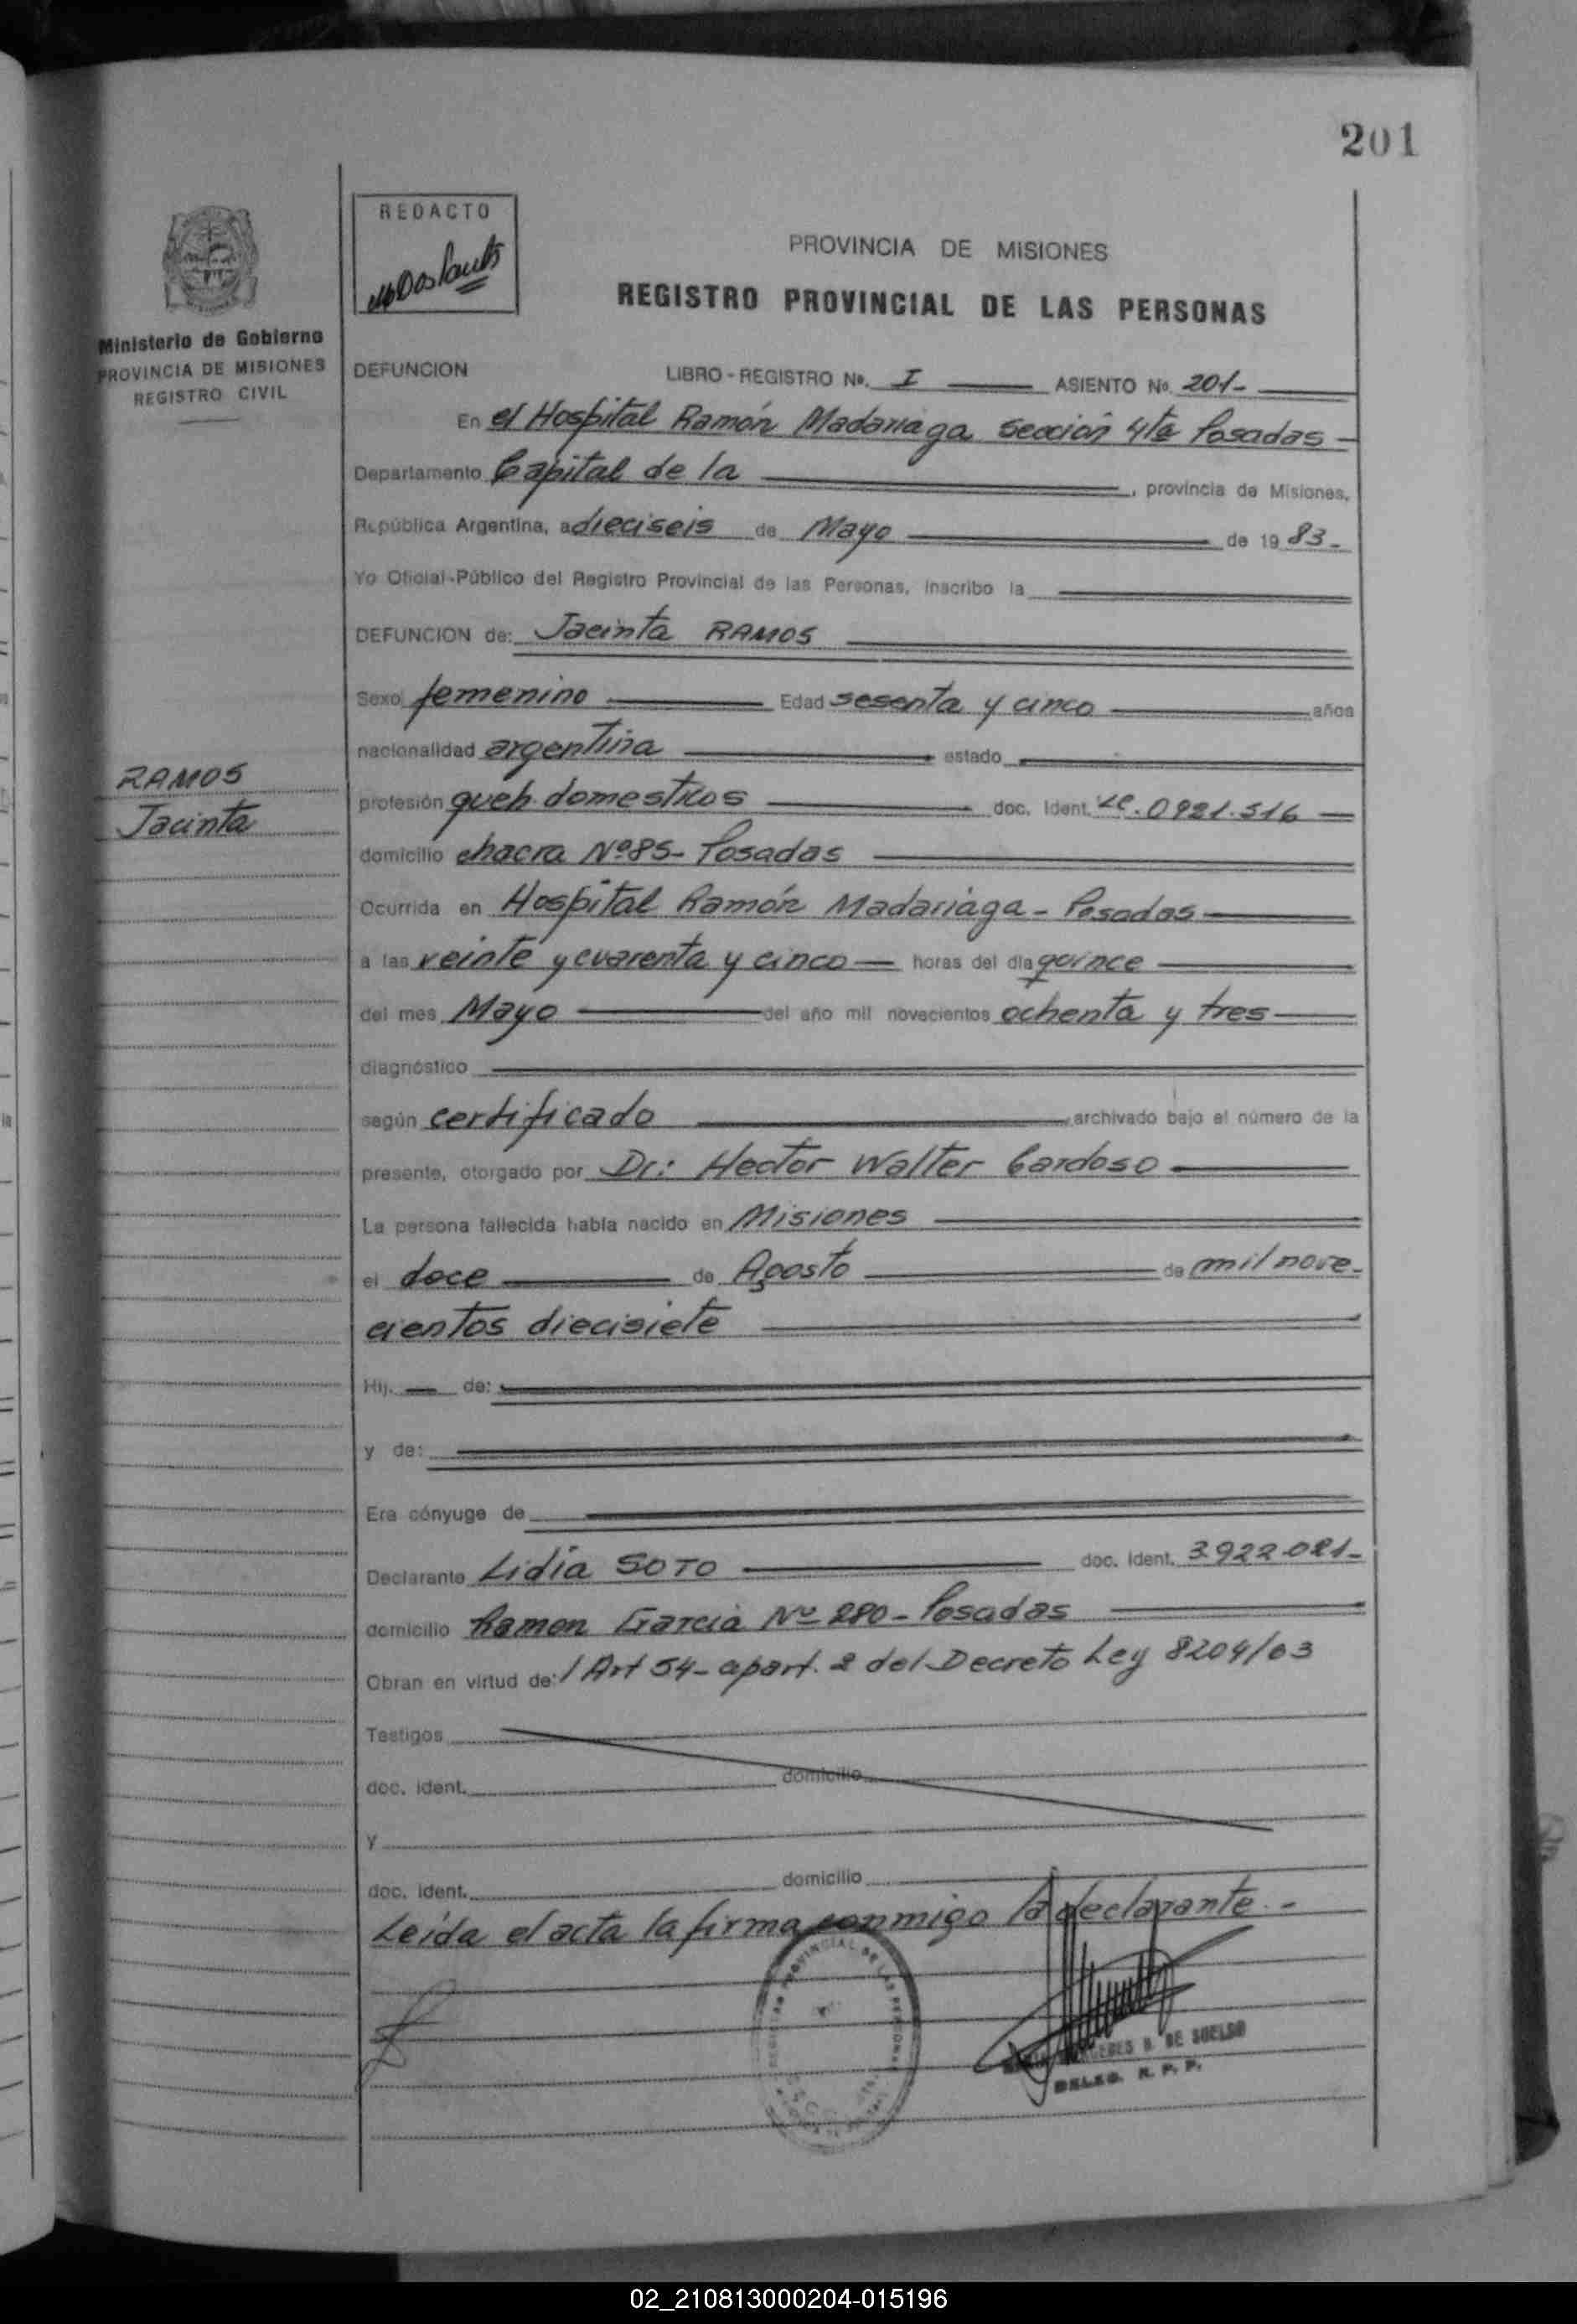 201
REDACTO
PROVINCIA DE MISIONES
REGISTRO PROVINCIAL DE LAS PERSONAS
Ministerio de Gobierno
PROVINCIA DE MISIONES
REGISTRO CIVIL
DEFUNCION LIBRO - REGISTRO Nº. I ASIENTO Nº. 201-
En el Hospital Ramón Madariaga Sección 4ta Posadas -
Departamento Capital de la , provincia de Misiones,
República Argentina, a dieciseis de Mayo de 19 83-
Yo Oficial-Público del Registro Provincial de las Personas, inscribo la
DEFUNCION de: Jacinta RAMOS
Sexo femenino Edad sesenta y cinco años
nacionalidad argentina estado
RAMOS
Jacinta
profesión queh. domesticos doc. Ident. LC. 0921.516
domicilio chacra Nº85- Posadas
Ocurrida en Hospital Ramón Madariaga - Posadas
a las veinte y cuarenta y cinco horas del día quince
del mes Mayo del año mil novecientos ochenta y tres
diagnóstico
según certificado archivado bajo el número de la
presente, otorgado por Dr: Hector Walter Cardoso
La persona fallecida había nacido en Misiones
el doce de Agosto de mil nove-
cientos diecisiete
Hij. de:
y de:
Era cónyuge de
Declarante Lidia SOTO doc. Ident. 3.922.021-
domicilio Ramon Garcia Nº 280 - Posadas
Obran en virtud de: / Art 54- apart. 2 del Decreto Ley 8204/63
Testigos
doc. ident. domicilio
y
doc. ident. domicilio
Leída el acta la firma conmigo la declarante.-
DE SUELDO
DELEG. R. P. P.
02_210813000204-015196